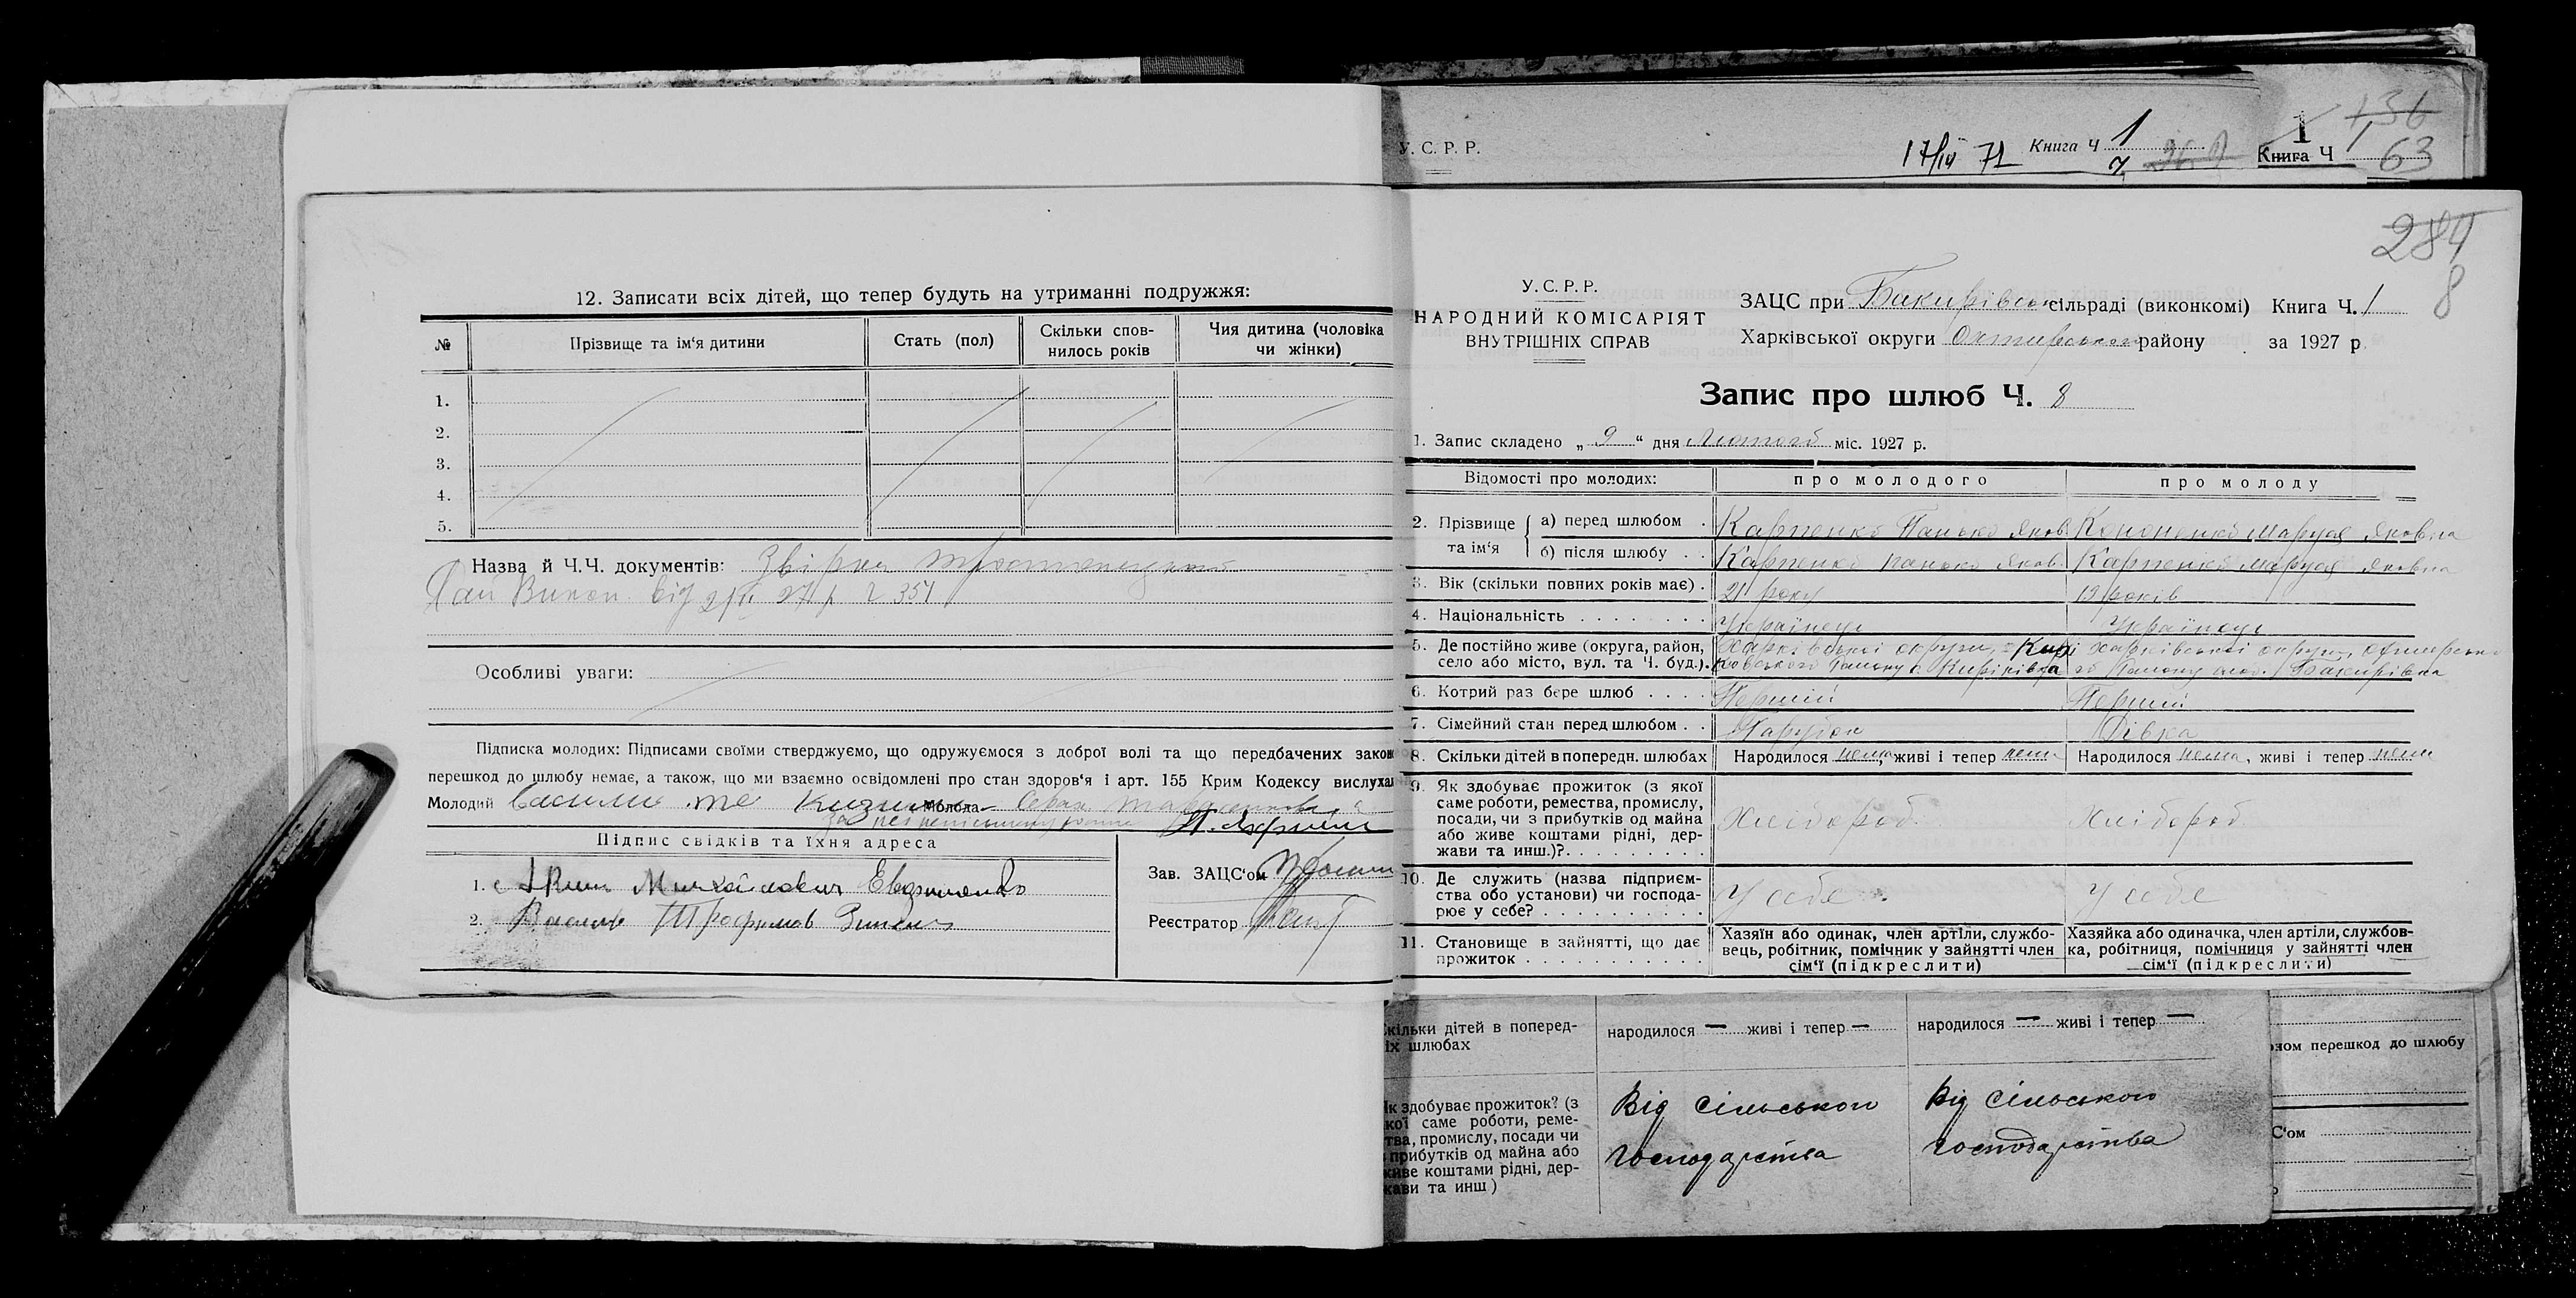 12. Записати всіх дітей, що тепер будуть на утриманні подружжя:
№ Прізвище та ім'я дитини Стать (пол) Скільки сповнилось років Чия дитина (чоловіка чи жінки)
1.
2.
3.
4.
5.
Назва й Ч.Ч. документів: Звірка
Рай Викон. від 2/II 27 р Ч 354
Особливі уваги:
Підписка молодих: Підписами своїми стверджуємо, що одружуємося з доброї волі та що передбачених закон
перешкод до шлюбу немає, а також, що ми взаємно освідомлені про стан здоров'я і арт. 155 Крим Кодексу вислухал
Молодий Молода
Підпис свідків та їхня адреса
1. Михайлович Евдименко
2. Василь Трофимов
Зав. ЗАЦС'ом
Реєстратор
У. С. Р. Р.
17/IV 71 Книга Ч 1
1 136
Книга Ч 1 63
284
8
У. С. Р. Р.
НАРОДНИЙ КОМІСАРІЯТ
ВНУТРІШНІХ СПРАВ
ЗАЦС при Бакирівськ сільраді (виконкомі) Книга Ч. 1
Харківської округи Охтирського району за 1927 р
Запис про шлюб Ч. 8
1. Запис складено „ 9 “ дня Лютого міс. 1927 р.
Відомості про молодих: про молодого про молоду
2. Прізвище та ім'я
а) перед шлюбом . Карпенко Панько Яков Кононенко Маруся Яковна
б) після шлюбу . . Карпенко Панько Яков Карпенко Маруся Яковна
3. Вік (скільки повних років має) . 21 року 19 років
4. Національність Українець Українець
5. Де постійно живе (округа, район, Харківської округи, Кирі Харківської округи, Охтирсько
село або місто, вул. та Ч. буд.). ковського Району с. Кириківка го Району слоб. Бакирівка
6. Котрий раз бере шлюб . . . . Перший Перший
7. Сімейний стан перед шлюбом . . Парубок Дівка
8. Скільки дітей в попередн. шлюбах Народилося нема, живі і тепер нема Народилося нема, живі і тепер нема
9. Як здобуває прожиток (з якої
саме роботи, ремества, промислу,
посади, чи з прибутків од майна
або живе коштами рідні, дер-
жави та инш.)? Хлібороб Хлібороб
10. Де служить (назва підприєм-
ства обо установи) чи господа-
рює у себе? У себе У себе
11. Становище в зайнятті, що дає
прожиток
Хазяїн або одинак, член артіли, службо-
вець, робітник, помічник у зайнятті член
сім'ї (підкреслити)
Хазяйка або одиначка, член артіли, службов-
ка, робітниця, помічниця у зайнятті член
сім'ї (підкреслити)
кільки дітей в поперед-
іх шлюбах
народилося — живі і тепер — народилося — живі і тепер —
як здобуває прожиток? (з
кої саме роботи, реме-
тва, промислу, посади чи
прибутків од майна або
живе коштами рідні, дер-
жави та инш)
Від сільського
господарства
Від сільського
господарства
оном перешкод до шлюбу
С'ом